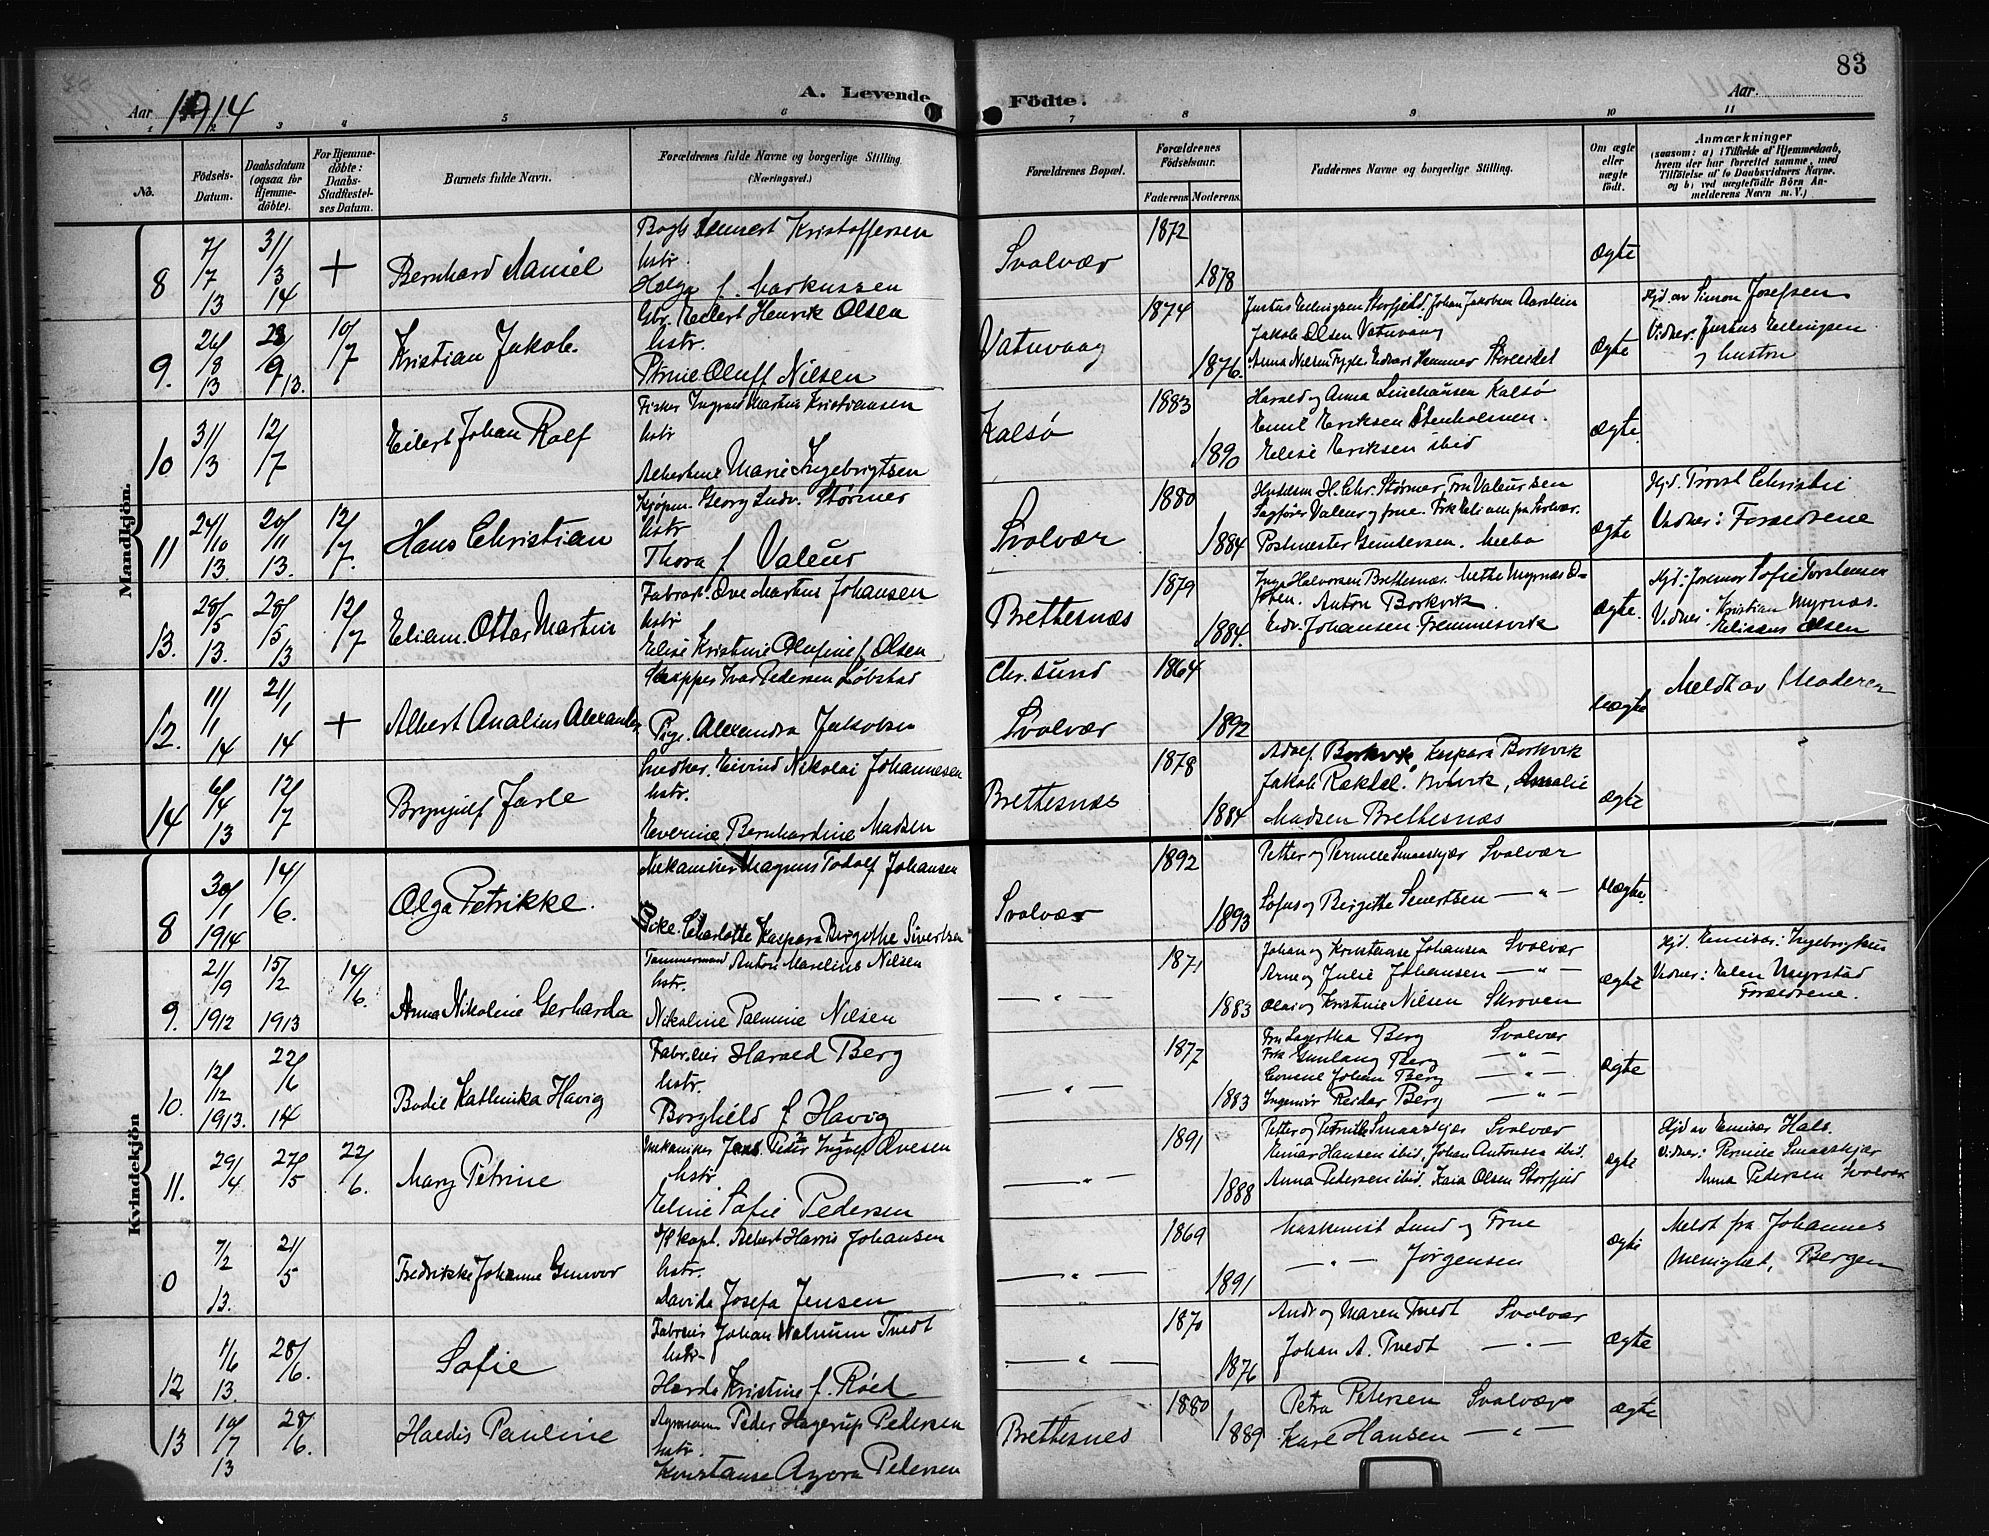 83
Aar 1914
A. Levende
Födte.
Aar
1 2 3 4 5 6 7 8 9 10 11
No.
Födsels-Datum.
Daabsdatum (ogsaa for Hjemme-döbte).
For Hjemme-döbte: Daabs-Stadfæstelses Datum.
Barnets fulde Navn.
Forældrenes fulde Navne og borgerlige Stilling. (Næringsvei.)
Forældrenes Bopæl.
Forældrenes Födselsaar.
Faderens. Moderens.
Faddernes Navne og borgerlige Stilling.
Om ægte eller uægte födt.
Anmærkninger
(saasom: a) i Tilfælde af Hjemmedaab, hvem der har forrettet samme, med Tilföielse af to Daabsvidners Navne, og b) ved uægtefödte Börn Anmelderens Navn m. V.)
Mandkjön.
8 7/7 13 31/3 14 + Bernhard Daniel
Kristoffersen
hstr.
Helga f. Markussen
Svolvær 1872 1878 ægte
9. 26/8 13 28/9 13. 10/7 Kristian Jakob.
Gbr. Eilert Henrik Olsen
hstr.
Oluff Nilsen
Vatnvaag 1874 1876.
Jakob Olsen Vatnvaag
ægte
Hjd. av Simon Josefsen
Vidner: Justus Ellingsen
og hustru
10 31/3 12/7 Eilert Johan Rolf
Fisker Ingvald Martin Kristiansen
hstr
Albertine Marie Ingebrigtsen
Kalsø 1883 1890
Harald og Anna Kalsø
Emil Eriksen Stenholmen.
Elise Eriksen ibid
ægte
11 24/10 13. 20/11 13. 12/7. Hans Christian
Kjøpm. Georg Ludv. Størmer
hstr
Thora f. Valeur
Svolvær 1880 1884
Postmester Gundersen. Melbo
ægte
Hjd. Provst Christie
Vidner: Forældrene
13. 28/5 13. 28/5 13 12/7 Eliam Ottar Martin
Ove Martin Johansen
hstr
Elise Kristine Olufine f. Olsen
Brettesnæs 1879 1884.
Inga Halvorsen Brettesnæs. Mette Myrnæs
Anton Borkvik.
Edv. Johansen
ægte.
Hjd: Jordmor Sofie Torstensen
Vidner: Kristian Myrnæs.
Olsen
12. 11/1 14 21/1 14 + Albert Analius Alexander
Skipper Ivar Pedersen Løbstad
Pige. Alexandra Jakobsen
Chr. sund
Svolvær 1864 1892
uægte
Meldt av Moderen
14 6/4 13 12/7 Brynjulf Jarle
Eivind Nikolai Johannesen
hstr.
Everine Bernhardine Madsen
Brettesnæs 1878 1884
Adolf Borkvik, Kaspara Borkvik
Jakob Amalie
Madsen Brettesnæs
ægte
Kvindekjön
8 30/1 1914 14/6. Olga Petrikke.
Mekaniker Magnus Todolf Johansen
Pike. Charlotte Kaspara Bergithe Sivertsen
Svolvær 1892 1893
Petter og Pernille Smaaskjær Svolvær
Sofus og Birgithe Sivertsen —"—
uægte.
9. 21/9 1912 15/2 1913 14/6. Anna Nikoline Gerharda
Tømmermand Anton Marelius Nilsen
hstr.
Nikoline Palmine Nilsen
—"— 1871 1883
Johan og Konstanse Johansen Svolvær
Arne og Julie Johansen —"—
Olai og Kristine Nilsen Skroven
ægte
Hjd. Emisær: Ingebrigtsen
Vidner: Elen Myrstad
Forældrene.
10. 12/12 1913. 22/6 14 Bodil Kathinka Havig
Fabr.eier Harald Berg
hstr.
Borghild f. Havig
—"— 1877 1883
Fru Lagertha Berg Svolvær
Frk Gunlaug Berg —"—
Johan Berg —"—
Ingeniør Reidar Berg —"—
ægte
11. 29/4 27/5 22/6. Mary Petrine
Mekaniker Jens Peder Ingvald Ovesen
hstr
Eline Sofie Pedersen
—"— 1891 1888
Petter og Pernille Smaaskjær Svolvær
Einar Hansen ibid, Johan Antonsen ibid.
Anna Pedersen ibid. Kaia Olsen Storfjeld
ægte
Hjd av Emisær Hals.
Vidner: Pernille Smaaskjær
Anna Pedersen Svolvær
0 7/2 13. 21/5 Fredrikke Johanne Gunvor
Albert Harris Johansen
hstr.
Davida Josefa Jensen
—"— 1869 1891
Maskinist Lund og Frue
—"— Jørgensen
ægte
Meldt fra Johannes
Menighet, Bergen
12 1/6 13. 28/6. Sofie
Fabreier Johan Walnum Tvedt
hstr
Harda Kristine f. Røed
—"— 1870 1876
Andr og Maren Tvedt Svolvær
Johan A. Tvedt —"—
ægte
13 10/7 13 28/6. Haldis Pauline
Agronom Peder Hagerup Pedersen
hstr.
Konstanse Agora Pedersen
Brettesnes 1880 1889
Petra Petersen Svolvær
Karl Hansen —"—
ægte